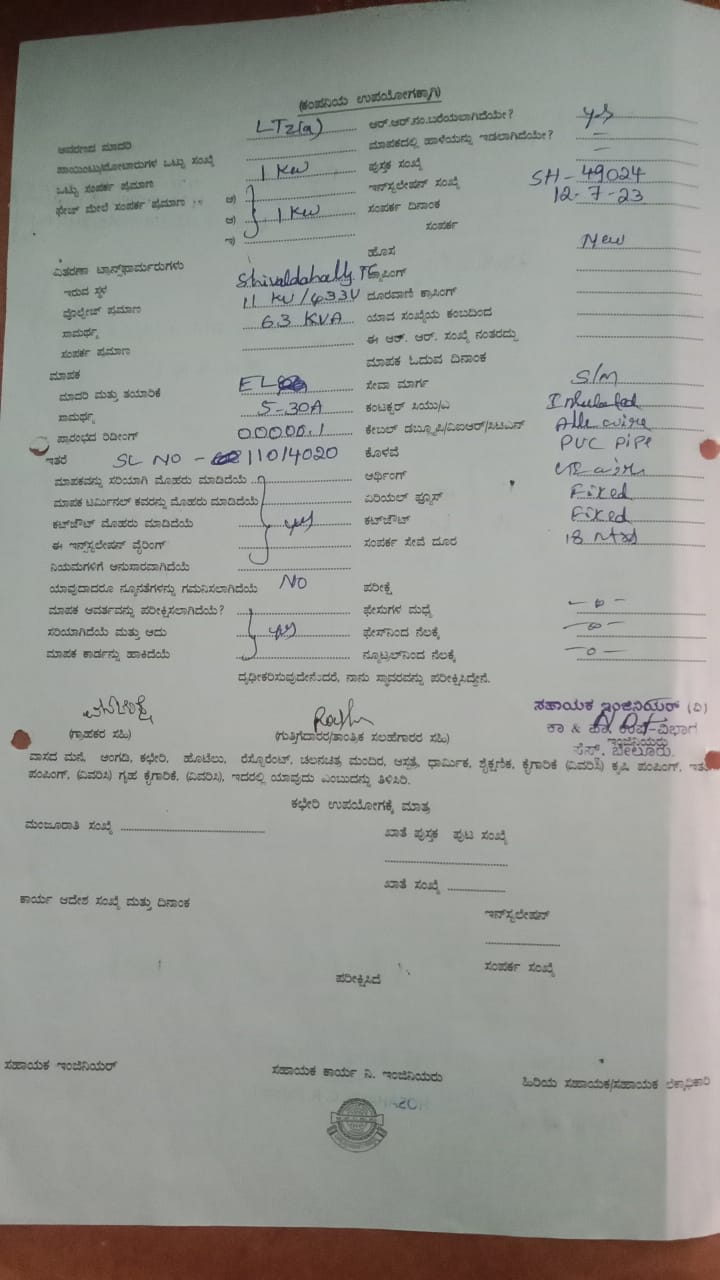 (ಕಂಪನಿಯ ಉಪಯೋಗಕ್ಕಾಗಿ)
ಆವರಣದ ಮಾದರಿ LT2(a) ಆರ್.ಆರ್.ನಂ.ಬರೆಯಲಾಗಿದೆಯೇ? yes
ಪಾಯಿಂಟು/ಮೋಟಾರುಗಳ ಒಟ್ಟು ಸಂಖ್ಯೆ ಮಾಪಕದಲ್ಲಿ ಹಾಳೆಯನ್ನು ಇಡಲಾಗಿದೆಯೇ? –
ಒಟ್ಟು ಸಂಪರ್ಕ ಪ್ರಮಾಣ 1 KW ಪುಸ್ತಕ ಸಂಖ್ಯೆ –
ಫೇಜ್ ಮೇಲೆ ಸಂಪರ್ಕ ಪ್ರಮಾಣ ಅ) ಇನ್‌ಸ್ಟಲೇಷನ್ ಸಂಖ್ಯೆ SH-49024
ಆ) 1 KW ಸಂಪರ್ಕ ದಿನಾಂಕ 12-7-23
ಇ) ಸಂಪರ್ಕ
ಹೊಸ New
ವಿತರಣಾ ಟ್ರಾನ್ಸ್‌ಫಾರ್ಮರುಗಳು
ಇರುವ ಸ್ಥಳ Shivaldahally TC ಕ್ರಾಸಿಂಗ್
ವೊಲ್ಟೇಜ್ ಪ್ರಮಾಣ 11 KV/433V ದೂರವಾಣಿ ಕ್ರಾಸಿಂಗ್
ಸಾಮರ್ಥ್ಯ 63 KVA ಯಾವ ಸಂಖ್ಯೆಯ ಕಂಬದಿಂದ
ಸಂಪರ್ಕ ಪ್ರಮಾಣ ಈ ಆರ್. ಆರ್. ಸಂಖ್ಯೆ ನಂತರದ್ದು
ಮಾಪಕ ಮಾಪಕ ಓದುವ ದಿನಾಂಕ
ಮಾದರಿ ಮತ್ತು ತಯಾರಿಕೆ ಸೇವಾ ಮಾರ್ಗ S/M
ಸಾಮರ್ಥ್ಯ 5-30A ಕಂಟಕ್ಟರ್ ಸಿಯು/ಎ Insulated
ಪ್ರಾರಂಭದ ರಿಡೀಂಗ್ 00000.1 ಕೇಬಲ್ ಡಬ್ಲ್ಯೂಪಿ/ವಿಐಆರ್/ಸಿಟಿಎನ್ wire
ಇತರೆ SL NO - 11014020 ಕೊಳವೆ PVC PIPE
ಮಾಪಕವನ್ನು ಸರಿಯಾಗಿ ಮೊಹರು ಮಾಡಿದೆಯೆ ಆರ್ಥಿಂಗ್
ಮಾಪಕ ಟರ್ಮಿನಲ್ ಕವರನ್ನು ಮೊಹರು ಮಾಡಿದೆಯೆ ಏರಿಯಲ್ ಫ್ಯೂಸ್ Fixed
ಕಟ್‌ಔಟ್ ಮೊಹರು ಮಾಡಿದೆಯೆ yes ಕಟ್‌ಔಟ್ Fixed
ಈ ಇನ್ಸ್‌ಸ್ಟಲೇಷನ್ ವೈರಿಂಗ್ ಸಂಪರ್ಕ ಸೇವೆ ದೂರ 18 Mtrs
ನಿಯಮಗಳಿಗೆ ಅನುಸಾರವಾಗಿದೆಯೆ
ಯಾವುದಾದರೂ ನ್ಯೂನತೆಗಳನ್ನು ಗಮನಿಸಲಾಗಿದೆಯೆ NO ಪರೀಕ್ಷೆ
ಮಾಪಕ ಆವರ್ತವನ್ನು ಪರೀಕ್ಷಿಸಲಾಗಿದೆಯೆ? ಫೇಸುಗಳ ಮಧ್ಯೆ -0-
ಸರಿಯಾಗಿದೆಯೆ ಮತ್ತು ಅದು yes ಫೇಸ್‌ನಿಂದ ನೆಲಕ್ಕೆ -0-
ಮಾಪಕ ಕಾರ್ಡನ್ನು ಹಾಕಿದೆಯೆ ನ್ಯೂಟ್ರಲ್‌ನಿಂದ ನೆಲಕ್ಕೆ -0-
ದೃಢೀಕರಿಸುವುದೇನೆಂದರೆ, ನಾನು ಸ್ಥಾವರವನ್ನು ಪರೀಕ್ಷಿಸಿದ್ದೇನೆ.
ಸಹಾಯಕ ಇಂಜಿನಿಯರ್ (ವಿ)
ಕಾ & ಪಾ ಉಪ-ವಿಭಾಗ
(ಗ್ರಾಹಕರ ಸಹಿ) (ಗುತ್ತಿಗೆದಾರರ/ತಾಂತ್ರಿಕ ಸಲಹೆಗಾರರ ಸಹಿ) ಇಂಜಿನಿಯರು
ಸೆಸ್. ಬೇಲೂರು.
ವಾಸದ ಮನೆ, ಅಂಗಡಿ, ಕಛೇರಿ, ಹೊಟೆಲು, ರೆಸ್ಟೊರೆಂಟ್, ಚಲನಚಿತ್ರ ಮಂದಿರ, ಆಸ್ಪತ್ರೆ, ಧಾರ್ಮಿಕ, ಶೈಕ್ಷಣಿಕ, ಕೈಗಾರಿಕೆ (ವಿವರಿಸಿ) ಕೃಷಿ ಪಂಪಿಂಗ್,
ಪಂಪಿಂಗ್, (ವಿವರಿಸಿ) ಗೃಹ ಕೈಗಾರಿಕೆ, (ವಿವರಿಸಿ), ಇದರಲ್ಲಿ ಯಾವುದು ಎಂಬುದನ್ನು ತಿಳಿಸಿರಿ.
ಕಛೇರಿ ಉಪಯೋಗಕ್ಕೆ ಮಾತ್ರ
ಮಂಜೂರಾತಿ ಸಂಖ್ಯೆ ಖಾತೆ ಪುಸ್ತಕ ಪುಟ ಸಂಖ್ಯೆ
ಖಾತೆ ಸಂಖ್ಯೆ
ಕಾರ್ಯ ಆದೇಶ ಸಂಖ್ಯೆ ಮತ್ತು ದಿನಾಂಕ
ಇನ್‌ಸ್ಟಲೇಷನ್
ಸಂಪರ್ಕ ಸಂಖ್ಯೆ
ಪರೀಕ್ಷಿಸಿದೆ
ಸಹಾಯಕ ಇಂಜಿನಿಯರ್ ಸಹಾಯಕ ಕಾರ್ಯ ನಿ. ಇಂಜಿನಿಯರು ಹಿರಿಯ ಸಹಾಯಕ/ಸಹಾಯಕ ಲೆಕ್ಕಾಧಿಕಾರಿ